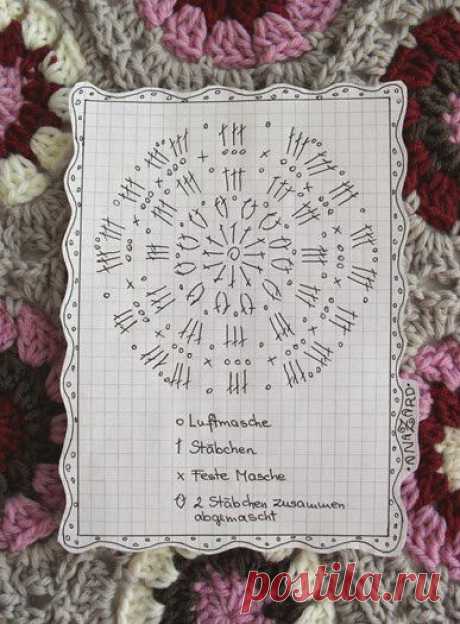 o Luftmasche
† Stäbchen
x Feste Masche
0 2 Stäbchen zusammen
abgemascht
ANNAZARD
postila.ru